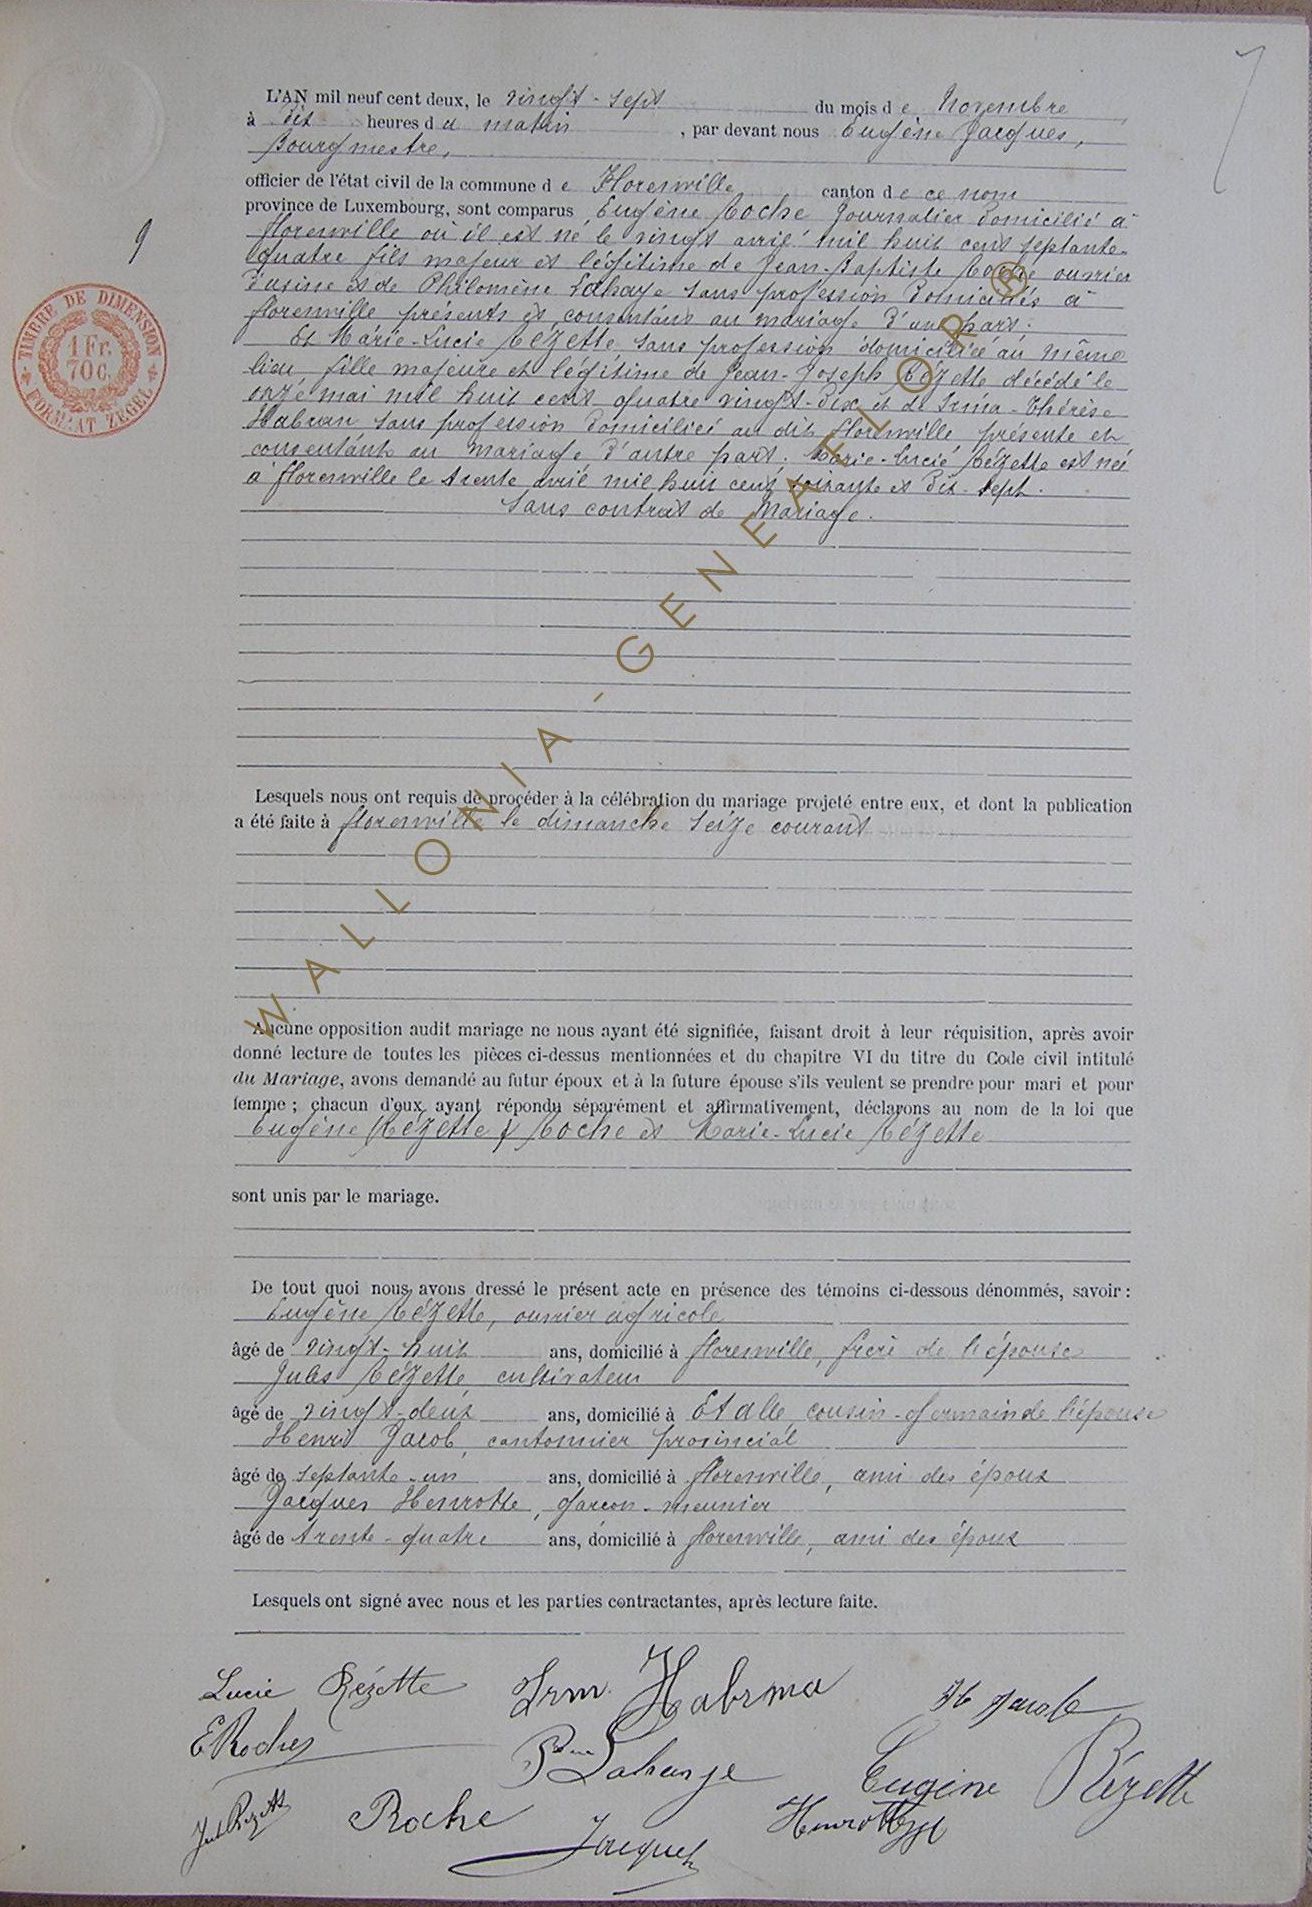 L'AN mil neuf cent deux, le vingt-sept du mois d e Novembre
à dix heures d u matin, par devant nous Eugène Jacques,
Bourgmestre,
officier de l'état civil de la commune d e Florenville canton d e ce nom
province de Luxembourg, sont comparus Eugène Roche Journalier domicilié à
florenville où il est né le vingt avril mil huit cent septante-
quatre fils majeur et légitime de Jean-Baptiste Roche ouvrier
d'usine et de Philomène Lahaye sans profession domiciliés à
florenville présents et consentant au mariage d'une part.
Et Marie-Lucie Rézette sans profession domiciliée au même
lieu fille majeure et légitime de Jean-Joseph Rézette décédé le
onze mai mil huit cent quatre vingt-dix et de Irma-Thérèse
Habran sans profession domiciliée au dit florenville présente et
consentante au mariage d'autre part. Marie-Lucie Rézette est née
à florenville le trente avril mil huit cent soixante et dix-sept.
Sans contrat de Mariage.
Lesquels nous ont requis de procéder à la célébration du mariage projeté entre eux, et dont la publication
a été faite à florenville le dimanche seize courant
Aucune opposition audit mariage ne nous ayant été signifiée, faisant droit à leur réquisition, après avoir
donné lecture de toutes les pièces ci-dessus mentionnées et du chapitre VI du titre du Code civil intitulé
du Mariage, avons demandé au futur époux et à la future épouse s'ils veulent se prendre pour mari et pour
femme ; chacun d'eux ayant répondu séparément et affirmativement, déclarons au nom de la loi que
Eugène (Rézette) Roche et Marie-Lucie Rézette
sont unis par le mariage.
De tout quoi nous avons dressé le présent acte en présence des témoins ci-dessous dénommés, savoir :
Eugène Rézette, ouvrier agricole
âgé de vingt-huit ans, domicilié à florenville, frère de l'épouse
Jules Rézette, cultivateur
âgé de vingt-deux ans, domicilié à Etalle, cousin-germain de l'épouse
Henri Jacob, cantonnier provincial
âgé de septante-un ans, domicilié à florenville, ami des époux
Jacques Henrotte, garçon-meunier
âgé de trente-quatre ans, domicilié à florenville, ami des époux
Lesquels ont signé avec nous et les parties contractantes, après lecture faite.
Lucie Rézette Irm. Habrma H Jacob
E Roche Lahaye Eugène Rézette
Jul Rezette Roche Jacques Henrotte
9
7
TIMBRE DE DIMENSION
1 Fr.
70 C.
FORMAT ZEGEL
WALLONIA-GENEALOR ®